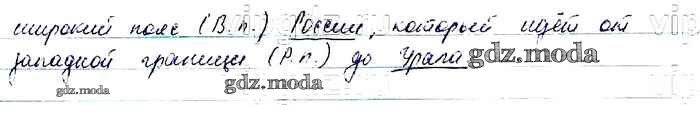 широкий пояс (В.п.) России, который идёт от
западной границы (Р.п.) до Урала gdz.moda
gdz.moda gdz.moda